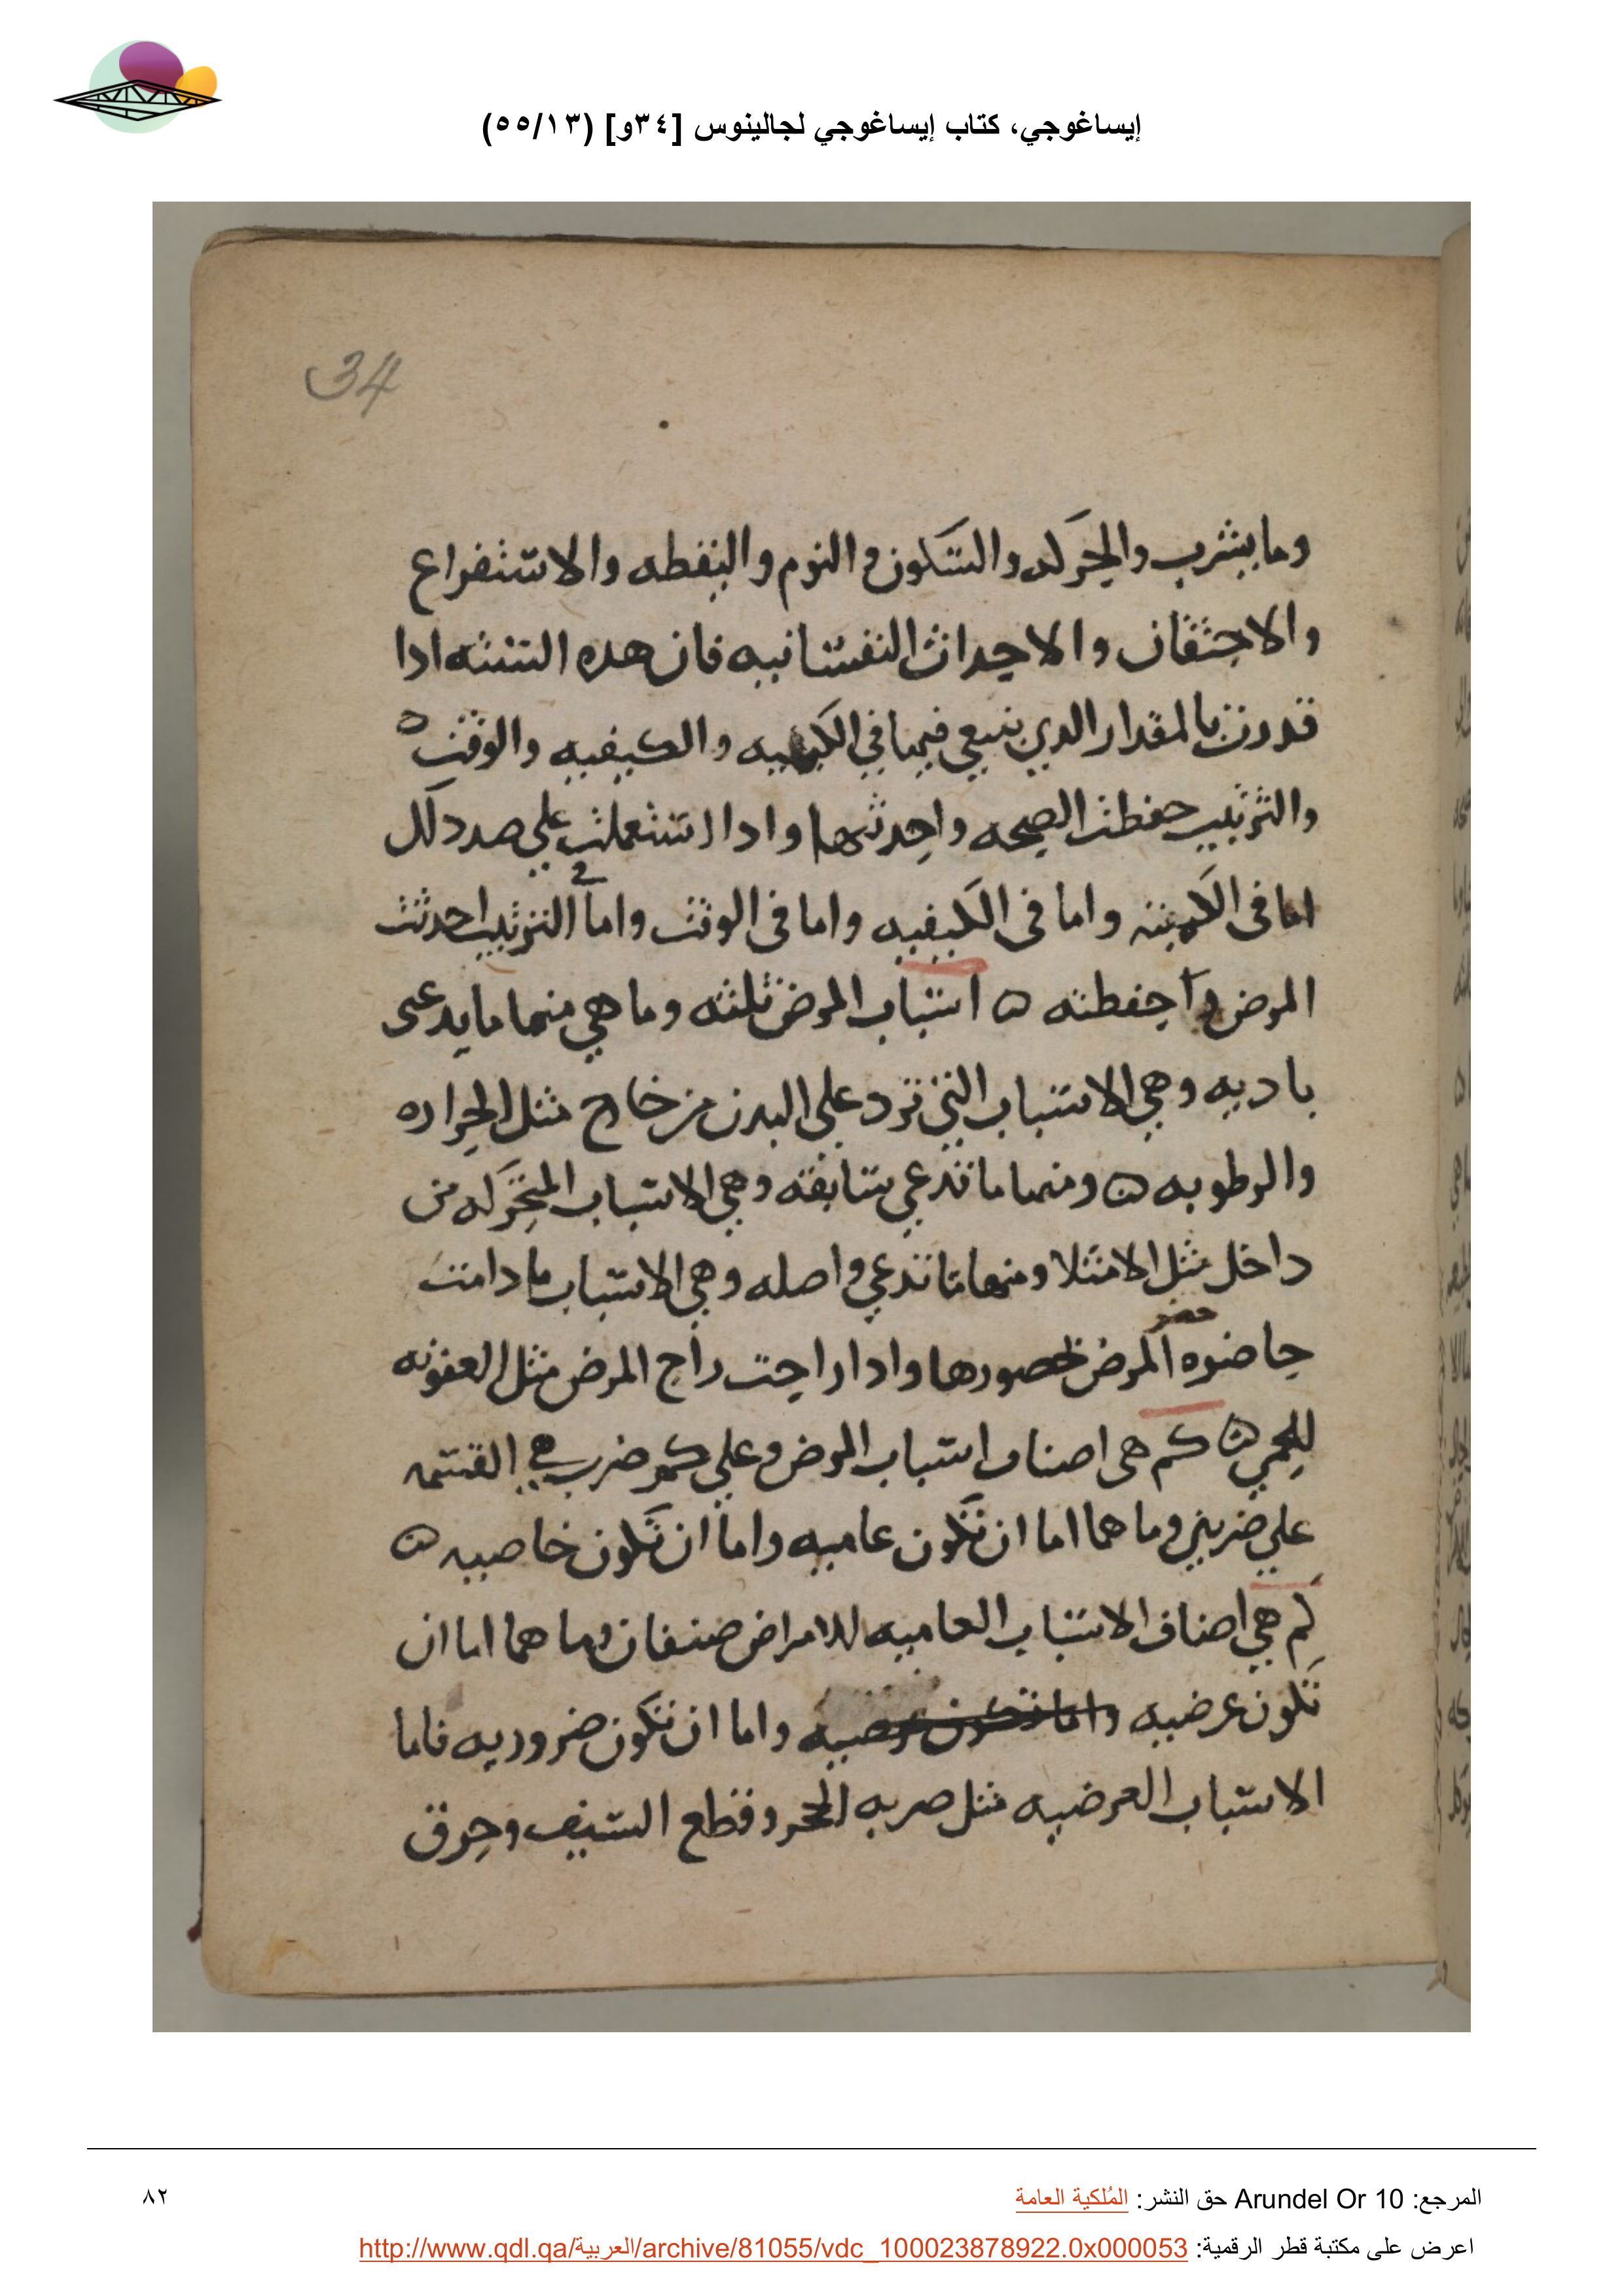 إيساغوجي، كتاب إيساغوجي لجالينوس [٣٤و] (٥٥/١٣)
34
وما يشرب والحركه والسكون والنوم واليقطه والاستفراع
والاحتقان والاحداث النفسانيه فان هده الستته ادا
قدرت بالمقدار الدي ينبعي فيها في الكميه والكيفيه والوقت ه
والترتيب حفطت الصحه واحدثتها وادا استعملت علي صد دلك
اما في الكميته واما في الكيفيه واما في الوقت واما في الترتيب احدثت
المرض وا حفطته ه اسباب المرض ثلثه وما هي منها ما يدعى
باديه وهي الاسباب التي ترد علي البدن من خارج مثل الحراره
والرطوبه ه ومنها ما تدعي سابقه وهي الاسباب المتحركه من
داخل مثل الامتلا ومنها ما تدعي واصله وهي الاسباب ما دامت
حاضره حضر المرض لحصورها وادا راحت راح المرض مثل العفونه
للحمي ه كم هي اصناف اسباب المرض وعلي كم ضرب هي القسمه
علي ضربين وما هما اما ان تكون عاميه واما ان تكون خاصيه ه
كم هي اصناف الاسباب العاميه للامراض صنفان وما هما اما ان
تكون عرضيه واما تكون عرضيه واما ان تكون ضروريه فاما
الاسباب العرضيه مثل صربه الحجر وقطع السيف وحرق
المرجع: Arundel Or 10 حق النشر: المُلكية العامة
٨٢
اعرض على مكتبة قطر الرقمية: http://www.qdl.qa/العربية/archive/81055/vdc_100023878922.0x000053